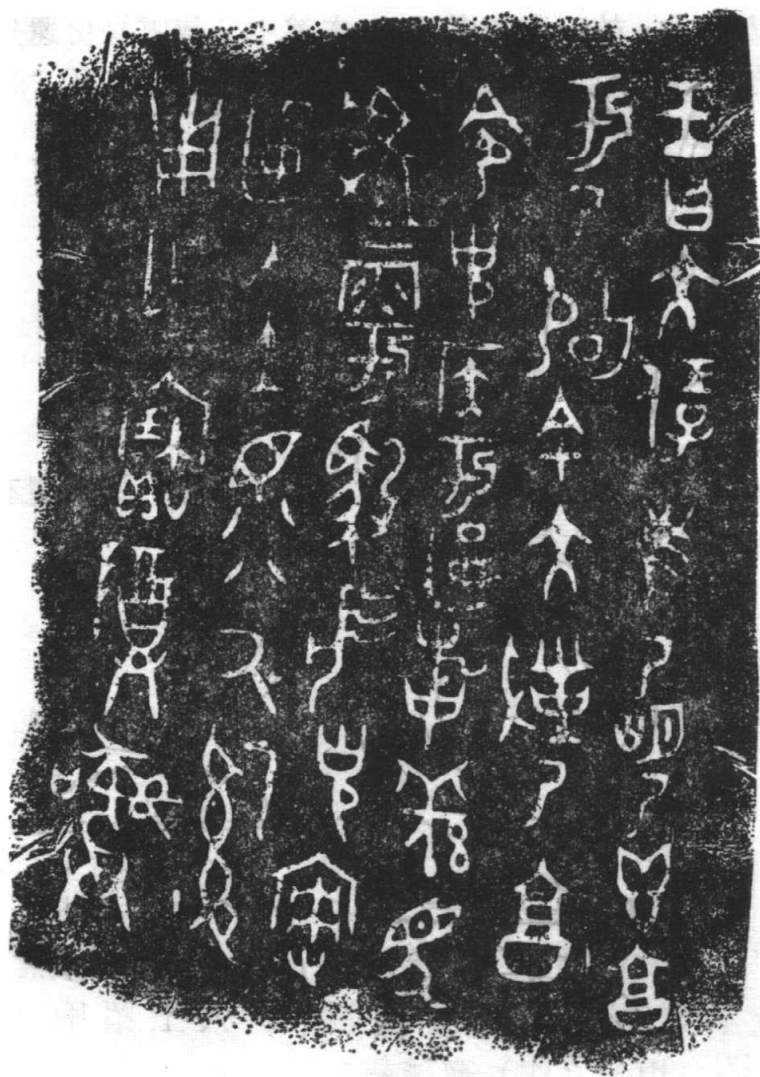 王曰大保隹乃明乃心享
于乃辟余大對乃享
令克侯于匽事羌馬
雩馭微克
匽入土眔厥𤔲
用乍寶尊彝